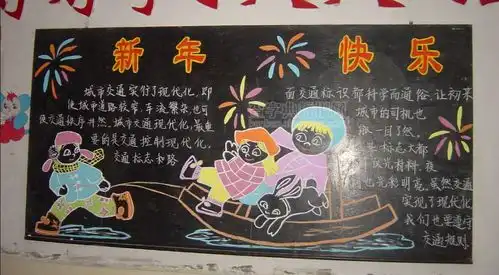 新年快乐
城市交通实行了现代化,即
使城市道路较窄,车流繁杂,也可
使交通秩序井然。城市交通现代化,最重
要的是交通控制现代化,
交通标志和路
面交通标识都科学而通俗,让初来
城市的司机也
一目了然。
标志大都
反光材料,夜
间也光彩明亮。虽然交通
实现了现代化
我们也要遵守
交通规则